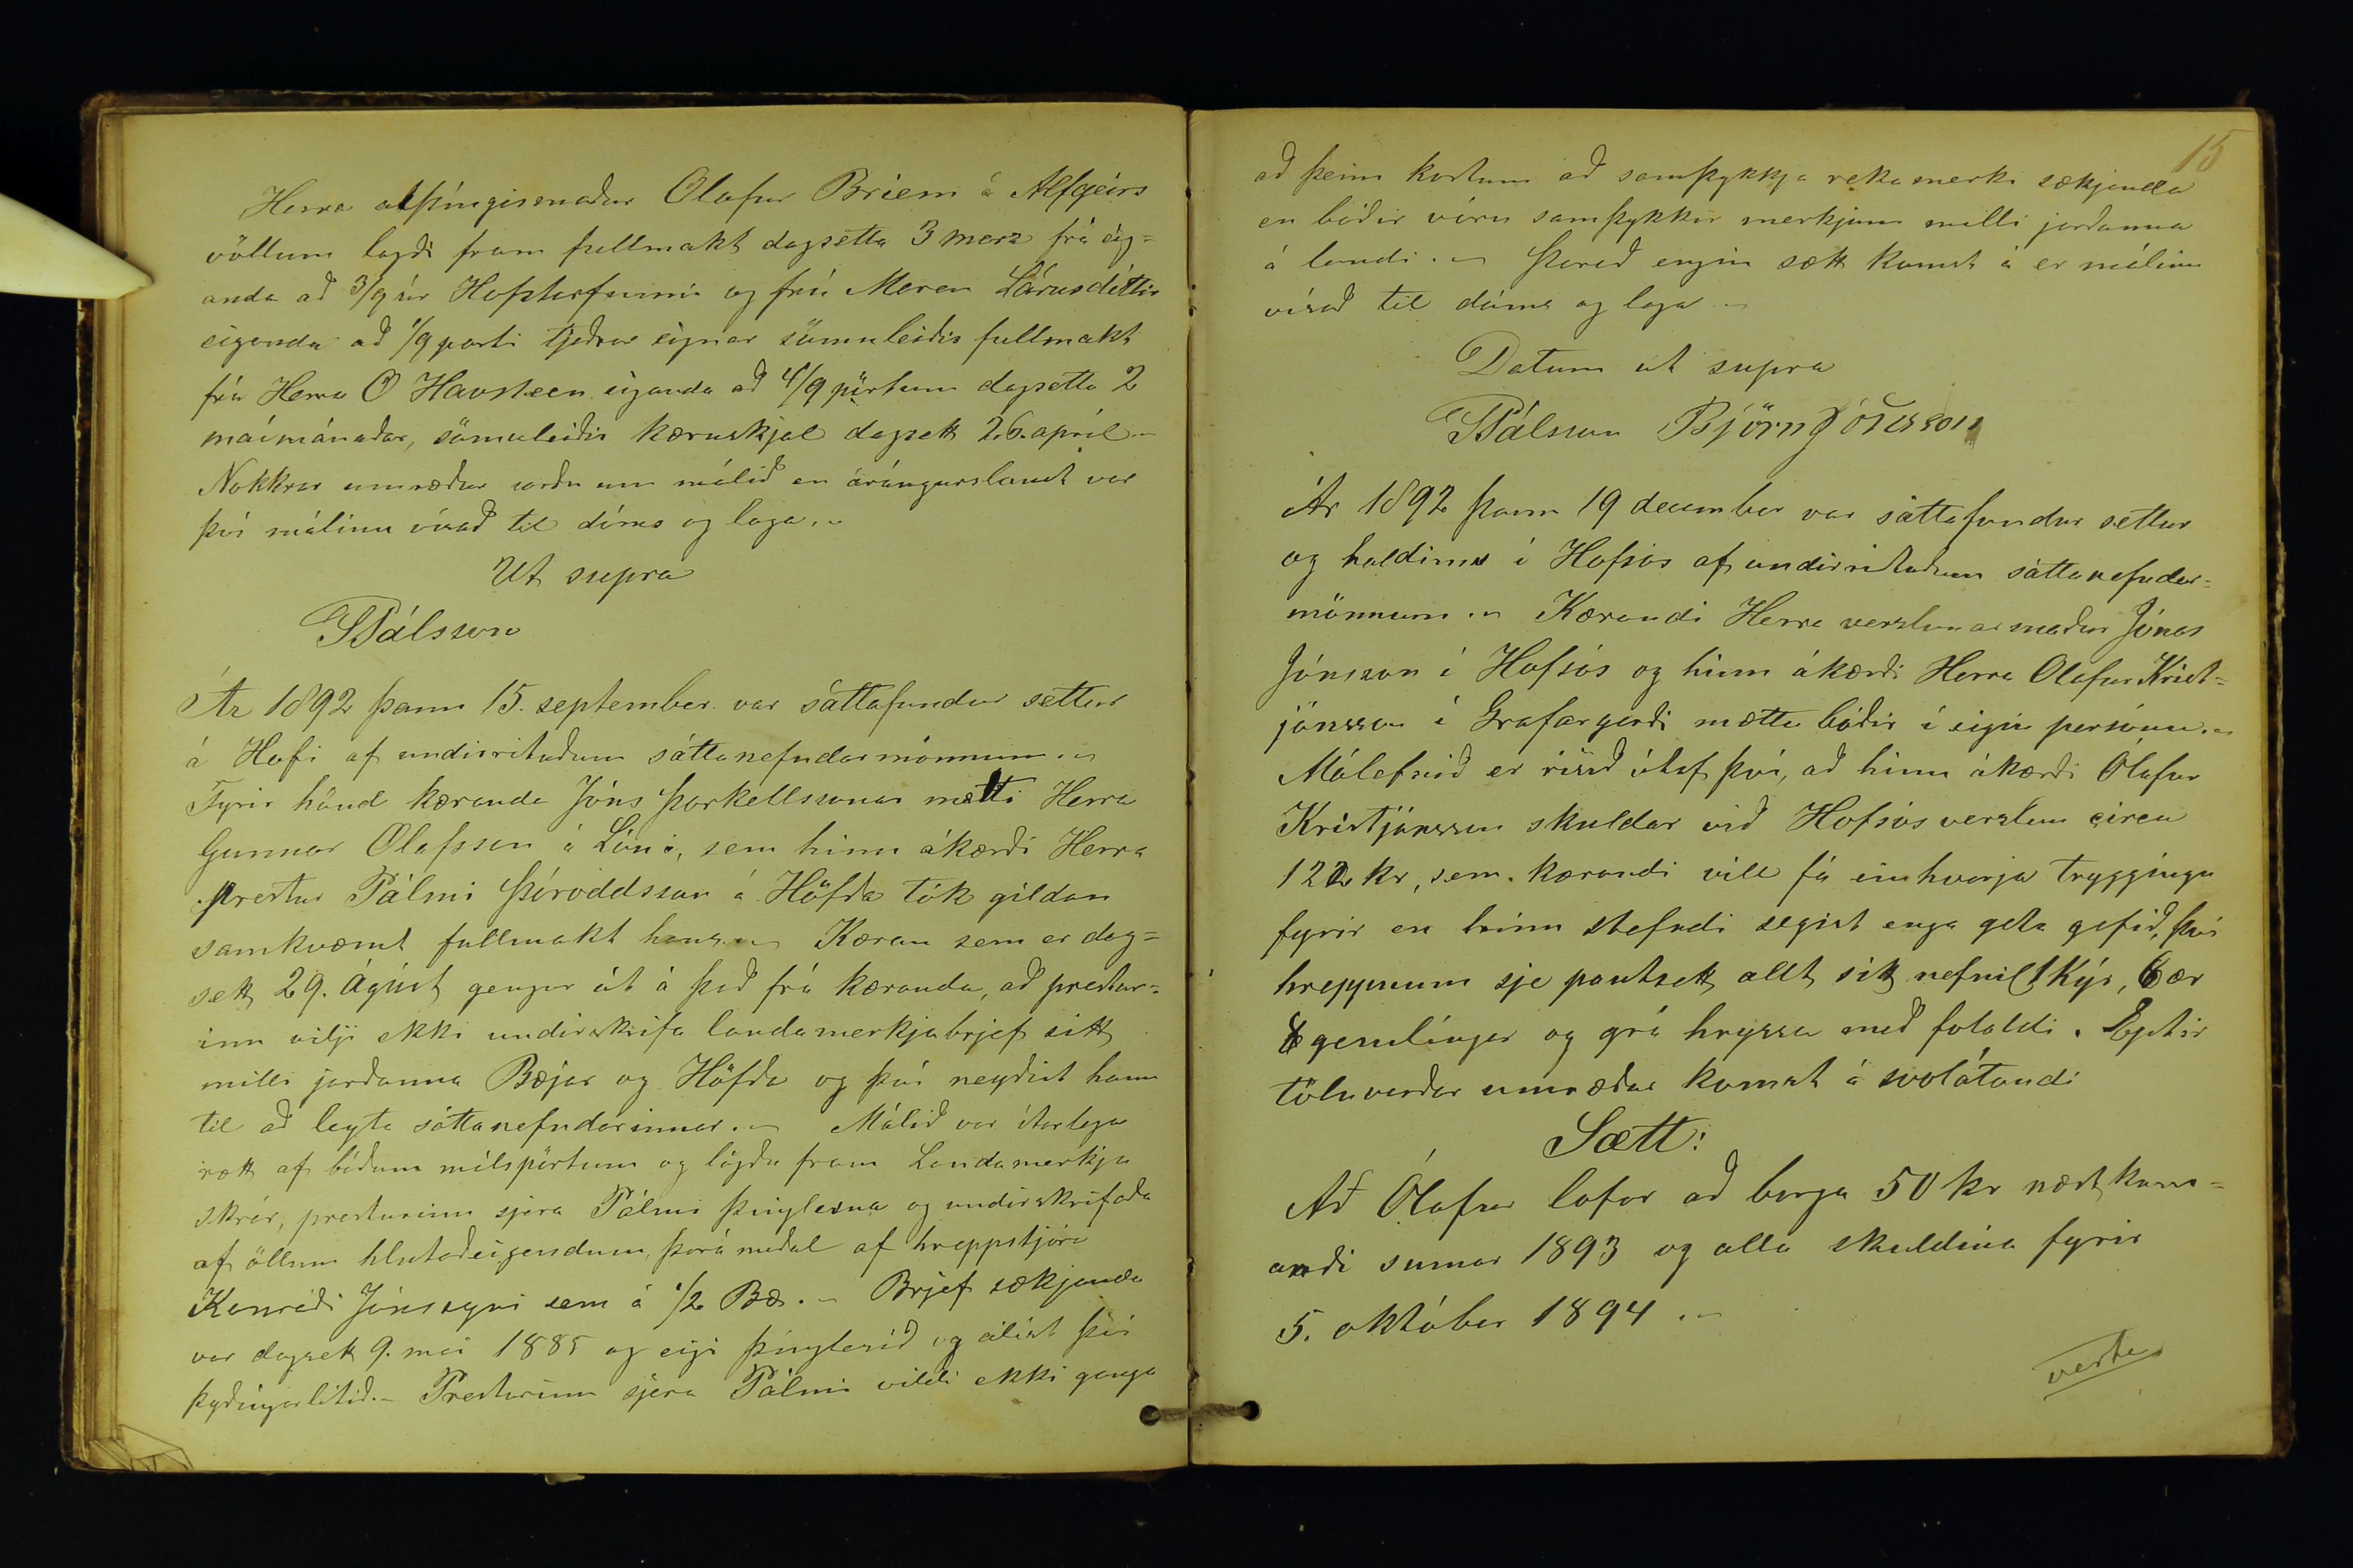 Herra alþíngismaður Olafur Briem á Alfgeirs
völlum lagði fram fullmakt dagsetta 3 marz frá eig=
anda að 3/9 úr Hofstorfunni og frú Maren Lárusdóttir
eiganda að 1/9 parti tjeðrar eignar sömuleiðis fullmakt
frá Herra O Havsteen eiganda að 4/9 pörtum dagsetta 2
maímánaðar, sömuleiðis kæruskjal dagsett 26. apríl.-
Nokkrar umræður urðu um málið en árángurslaust var
því málinu vísað til dóms og laga.-
Ut supra
Pálsson
Ár 1892 þann 15. september var sáttafundur settur
á Hofi af undirrituðum sáttanefndarmönnum.-
Fyrir hönd kæranda Jóns Þorkellssonar mætti Herra
Gunnar Olafsson á Lóni, sem hinn ákærði Herra
prestur Pálmi Þóroddsson á Höfða tók gildan
samkvæmt fullmakt hans.- Kæran sem er dag=
sett 29. Ágúst gengur út á það frá kæranda, að prestur=
inn vilji ekki undirskrifa landamerkjabrjef sitt
milli jarðanna Bæjar og Höfða og því neyðist hann
til að leyta sáttanefndarinnar.- Málið var ítarlega
rætt af báðum málspörtum og lögðu fram Landamerkja
skrár, presturinn sjera Pálmi þinglesna og undirskrifaða
af öllum hlutaðeigendum, þar á meðal af hreppstjóra
Konráði Jónssyni sem á 1/2 Bæ.- Brjef sækjanda
var dagsett 9. maí 1885 og eigi þinglesið og álist því
þyðingarlitið.- Presturinn sjera Pálmi vildi ekki ganga
15
að þeim kostum að samþykkja rekamerki sækjanda
en báðir vóru samþykkir merkjum milli jarðanna
á landi.- Þareð engin sætt komst á er málinu
vísað til dóms og laga -
Datum ut supra
Pálsson Björn Jónsson
Ár 1892 þann 19 december var sáttafundur settur
og haldinn í Hofsós af undirrituðum sáttanefndar=
mönnum.- Kærandi Herra verslunarmaður Jónas
Jónsson í Hofsós og hinn ákærði Herra Olafur Krist=
jánsson í Grafargerði mættu báðir í eigin persónu.-
Málefnið er risið útaf því, að hinn ákærði Ólafur
Kristjánsson skuldar við Hofsós verslun circa
122 kr, sem kærandi vill fá einhverja tryggíngu
fyrir en hinn stefndi segist enga geta gefið, því
hreppnum sje pantsett allt sitt nefnil 1 Kýr, 6 ær
8 gemlíngar og grá hryssa með folaldi. Eptir
töluverðar umræður komst á svolátandi
Sætt:
Að Ólafur lofar að borga 50 kr næstkom=
andi sumar 1893 og alla skuldina fyrir
5. október 1894.-
verte